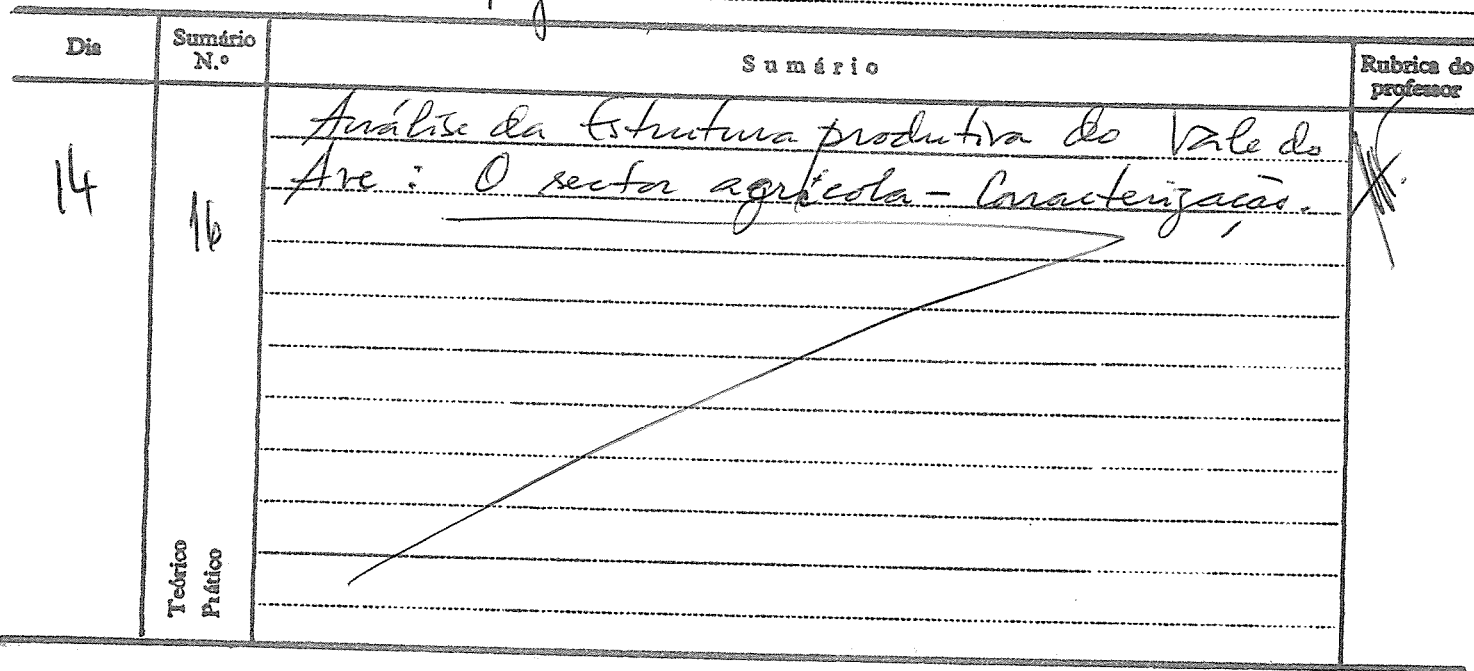 Dia
Sumário N.º
Sumário
Rubrica do professor
14
16
Análise da Estrutura produtiva do Vale do
Ave : O sector agrícola - Caracterização.
Teórico
Prático